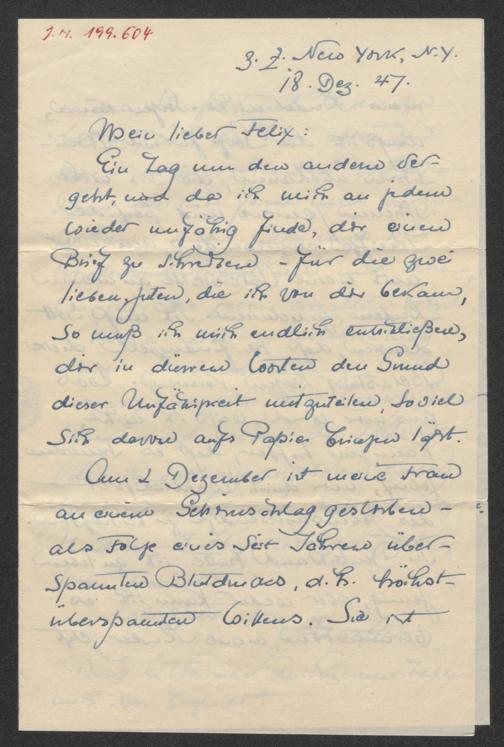 J.N. 199.604
z. Z. New York, N.Y.
18. Dez. 47.
Mein lieber Felix:
Ein Tag um den andern ver-
geht, und da ich mich an jedem
wieder unfähig finde, dir einen
Brief zu schreiben - für die zwei
lieben, guten, die ich von dir bekam,
so muß ich mich endlich entschließen,
dir in dürren Worten den Grund
dieser Unfähigkeit mitzuteilen, soviel
sich davon aufs Papier bringen läßt.
Am 2 Dezember ist meine Frau
an einem Gehirnschlag gestorben -
als Folge eines seit Jahren über-
spannten Blutdrucks, d.h. höchst-
überspannten Willens. Sie ist